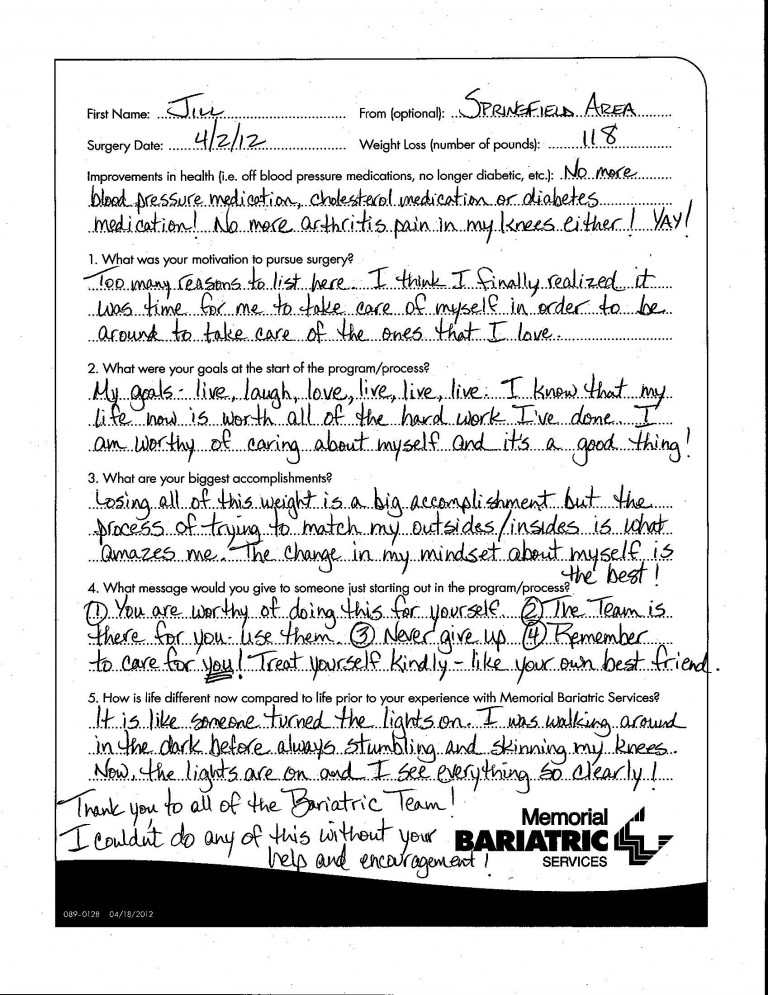 First Name: JILL From (optional): SPRINGFIELD AREA
Surgery Date: 4/2/12 Weight Loss (number of pounds): 118
Improvements in health (i.e. off blood pressure medications, no longer diabetic, etc.): No more
blood pressure medication, cholesterol medication or diabetes
medication! No more arthritis pain in my knees either! YAY!
1. What was your motivation to pursue surgery?
Too many reasons to list here. I think I finally realized it
was time for me to take care of myself in order to be
around to take care of the ones that I love.
2. What were your goals at the start of the program/process?
My goals - live, laugh, love, live, live, live. I know that my
life now is worth all of the hard work I've done. I
am worthy of caring about myself and it's a good thing!
3. What are your biggest accomplishments?
Losing all of this weight is a big accomplishment but the
process of trying to match my outsides/insides is what
amazes me. The change in my mindset about myself is
the best!
4. What message would you give to someone just starting out in the program/process?
① You are worthy of doing this for yourself. ② The Team is
there for you - use them. ③ Never give up ④ Remember
to care for you! Treat yourself kindly - like your own best friend.
5. How is life different now compared to life prior to your experience with Memorial Bariatric Services?
It is like someone turned the lights on. I was walking around
in the dark before always stumbling and skinning my knees.
Now, the lights are on and I see everything so clearly!
Thank you, to all of the Bariatric Team!
I couldn't do any of this without your
help and encouragement!
Memorial
BARIATRIC
SERVICES
089-0128 04/18/2012